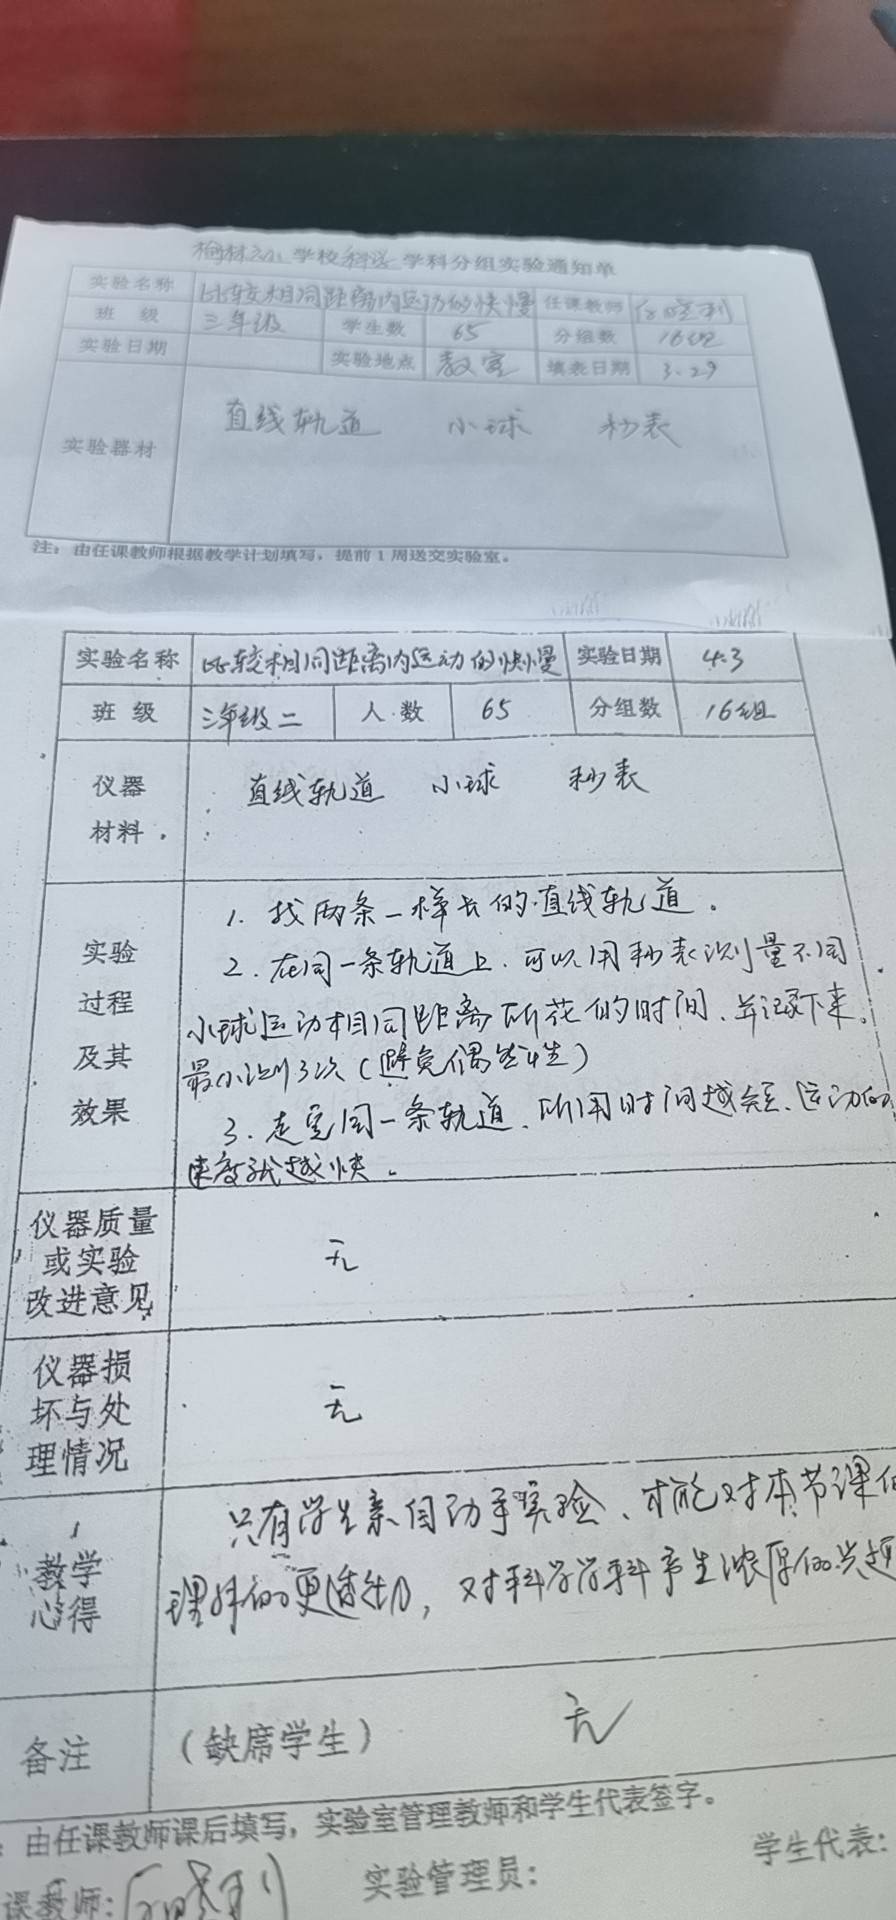 学校科学学科分组实验通知单
实验名称 比较相同距离内运动的快慢 任课教师
班 级 三年级 学生数 65 分组数 16组
实验日期 实验地点 教室 填表日期 3.29
实验器材 直线轨道 小球 秒表
注：由任课教师根据教学计划填写，提前1周送交实验室。
实验名称 比较相同距离内运动的快慢 实验日期 4.3
班 级 三年级二 人数 65 分组数 16组
仪器材料 直线轨道 小球 秒表
实验过程及其效果
1. 找两条一样长的直线轨道。
2. 在同一条轨道上，可以用秒表测量不同
小球运动相同距离所花的时间、并记录下来。
最小测3次（避免偶然性）
3. 走完同一条轨道、所用时间越短、运动的
速度就越快。
仪器质量或实验改进意见 无
仪器损坏与处理情况 无
教学心得
只有学生亲自动手实验、才能对本节课的
理解的更透彻，对科学学科产生浓厚的兴趣
备注 （缺席学生） 无
：由任课教师课后填写，实验室管理教师和学生代表签字。
课教师： 实验管理员： 学生代表：